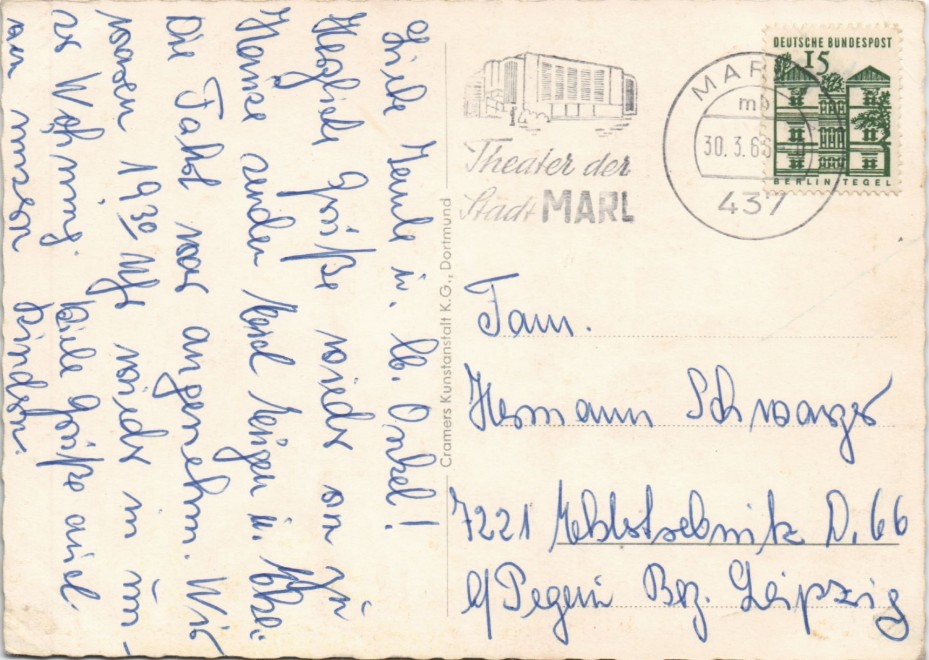 Liebe Heule u. lb. Onkel!
Herzliche Grüße wieder von zu
Hause senden Euch Jürgen u.
Die Fahrt war angenehm. Wir
waren 19³⁰ Uhr wieder in uns-
rer Wohnung. Viele Grüße auch
von unseren Kindern.
Cramers Kunstanstalt K.G., Dortmund
Theater der
Stadt MARL
MARL
mb
30.3.65
437
DEUTSCHE BUNDESPOST
15
BERLIN TEGEL
Fam.
Hermann Schwarzer
7221 D. 66
b/Pegau Bez. Leipzig